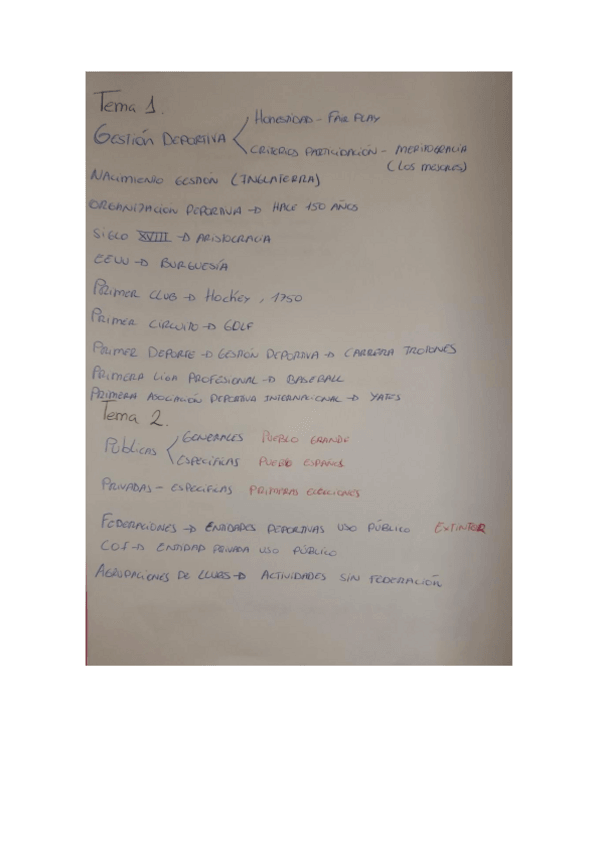 Tema 1.
HONESTIDAD - FAIR PLAY
GESTIÓN DEPORTIVA
CRITERIOS PARTICIPACIÓN - MERITOCRACIA
(LOS MEJORES)
NACIMIENTO GESTIÓN (INGLATERRA)
ORGANIZACIÓN DEPORTIVA → HACE 150 AÑOS
SIGLO XVIII → ARISTOCRACIA
EEUU → BURGUESÍA
PRIMER CLUB → HOCKEY, 1750
PRIMER CIRCUITO → GOLF
PRIMER DEPORTE → GESTIÓN DEPORTIVA → CARRERA TROTONES
PRIMERA LIGA PROFESIONAL → BASEBALL
PRIMERA ASOCIACIÓN DEPORTIVA INTERNACIONAL → YATES
Tema 2.
GENERALES PUEBLO GRANDE
PÚBLICAS
ESPECÍFICAS PUEBLO ESPAÑOL
PRIVADAS - ESPECÍFICAS PRIMERAS ELECCIONES
FEDERACIONES → ENTIDADES DEPORTIVAS USO PÚBLICO EXTINTOR
→ ENTIDAD PRIVADA USO PÚBLICO
AGRUPACIONES DE CLUBS → ACTIVIDADES SIN FEDERACIÓN